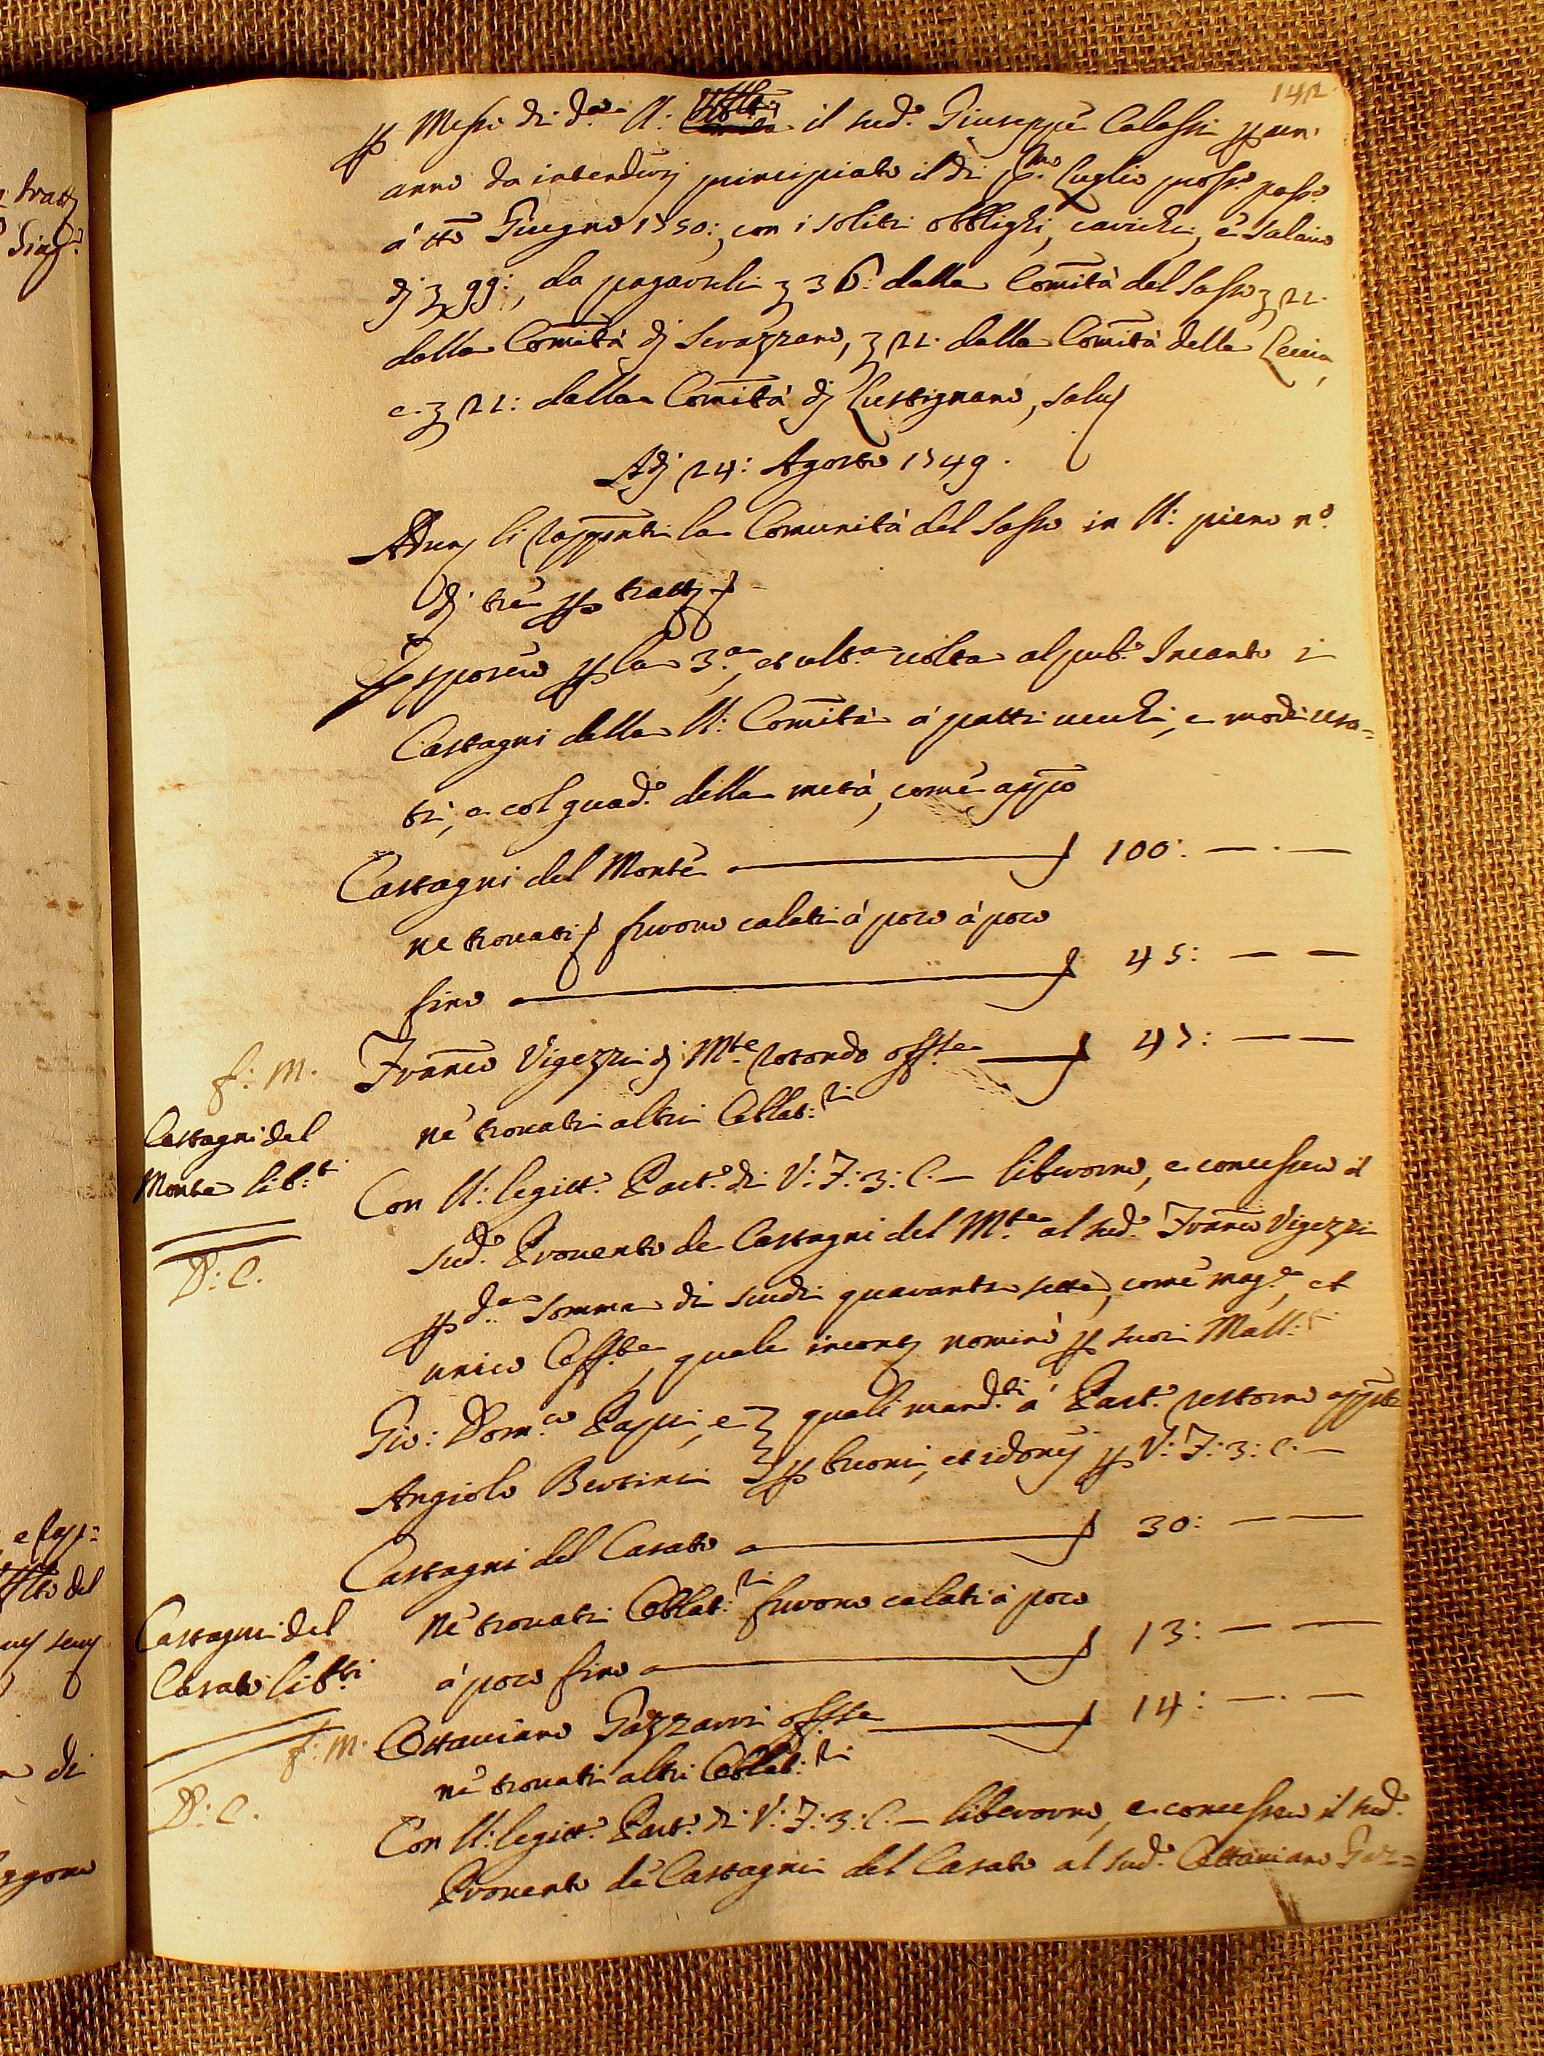 142
p Messo di d.a V: il sud.o Giuseppe Calossi p un
anno da intendersi principiato il dì p.mo Luglio pross.o pass.o
à tt̄o Giugno 1750:, con i soliti obblighi, carichi, e salario
dj 99:, da pagarseli 36: dalla Com̄ità del Sasso 21.
dalla Com̄ità dj Serazzano, 21. dalla Com̄ità della Leccia,
e 21: dalla Com̄ità dj Lustignano, salvj
Adj 24: Agosto 1749.
Adun.j li Rapp̄nti la Comunità del Sasso in V: pieno n.o
dj trè p trattj
Esposero p la 3.a, et ult.a volta al pub.o Incanto i
Castagni della V: Com̄ità à patti vecchi, e modi usa=
ti, e col guad.o della metà, come app̄o
Castagni del Monte 100: — . —
ne trovati furono calati à poco à poco
fino 45: — —
f: M. Fran̄co Vigezzi dj M.te rotondo off.te 47: — —
Castagni del
Monte lib.ti
D: C.
nè trovati altri Oblat.ri
Con V: legitt.o Part.o di V: F: 3: C. — liberorno, e concessero il
sud.o Provento de Castagni del M.te al sud.o Fran̄co Vigezzi
p d.a Somma di scudi quaranta sette, come mag.e, et
unico Off.te, quale incont.j nominò p suoi Mall.ri
Gio: Dom.co Papi, e quali mand.ti à Part.o restorno app̄te
Angiolo Bertini p buoni, et idonej p V: F: 3: C. —
Castagni del Casato 30: — —
Castagni del
Casato lib.ti
nè trovati Oblat.ri furono calati à poco
à poco fino 13: — —
f: M. Ottaviano Gazzarri off.te 14: — . —
D: C.
nè trovati altri Oblat.ri
Con V: legitt.o Part.o di V: F: 3: C. — liberorno, e concessero il sud.o
Provento de Castagni del Casato al sud.o Ottaviano Gaz=